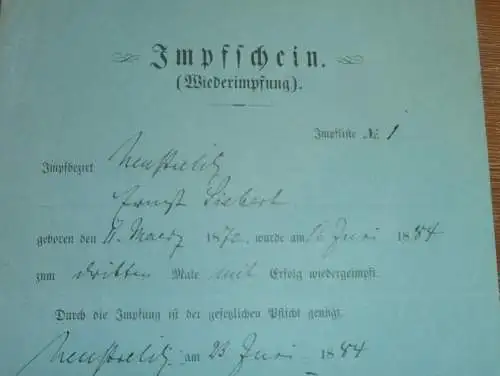 Impfschein.
(Wiederimpfung).
Impfliste № 1
Impfbezirk Neustrelitz
Ernst Siebert
geboren den 11. Maerz 1870, wurde am 16 Juni 1884
zum dritten Male mit Erfolg wiedergeimpft.
Durch die Impfung ist der gesetzlichen Pflicht genügt.
Neustrelitz am 23 Juni 1884